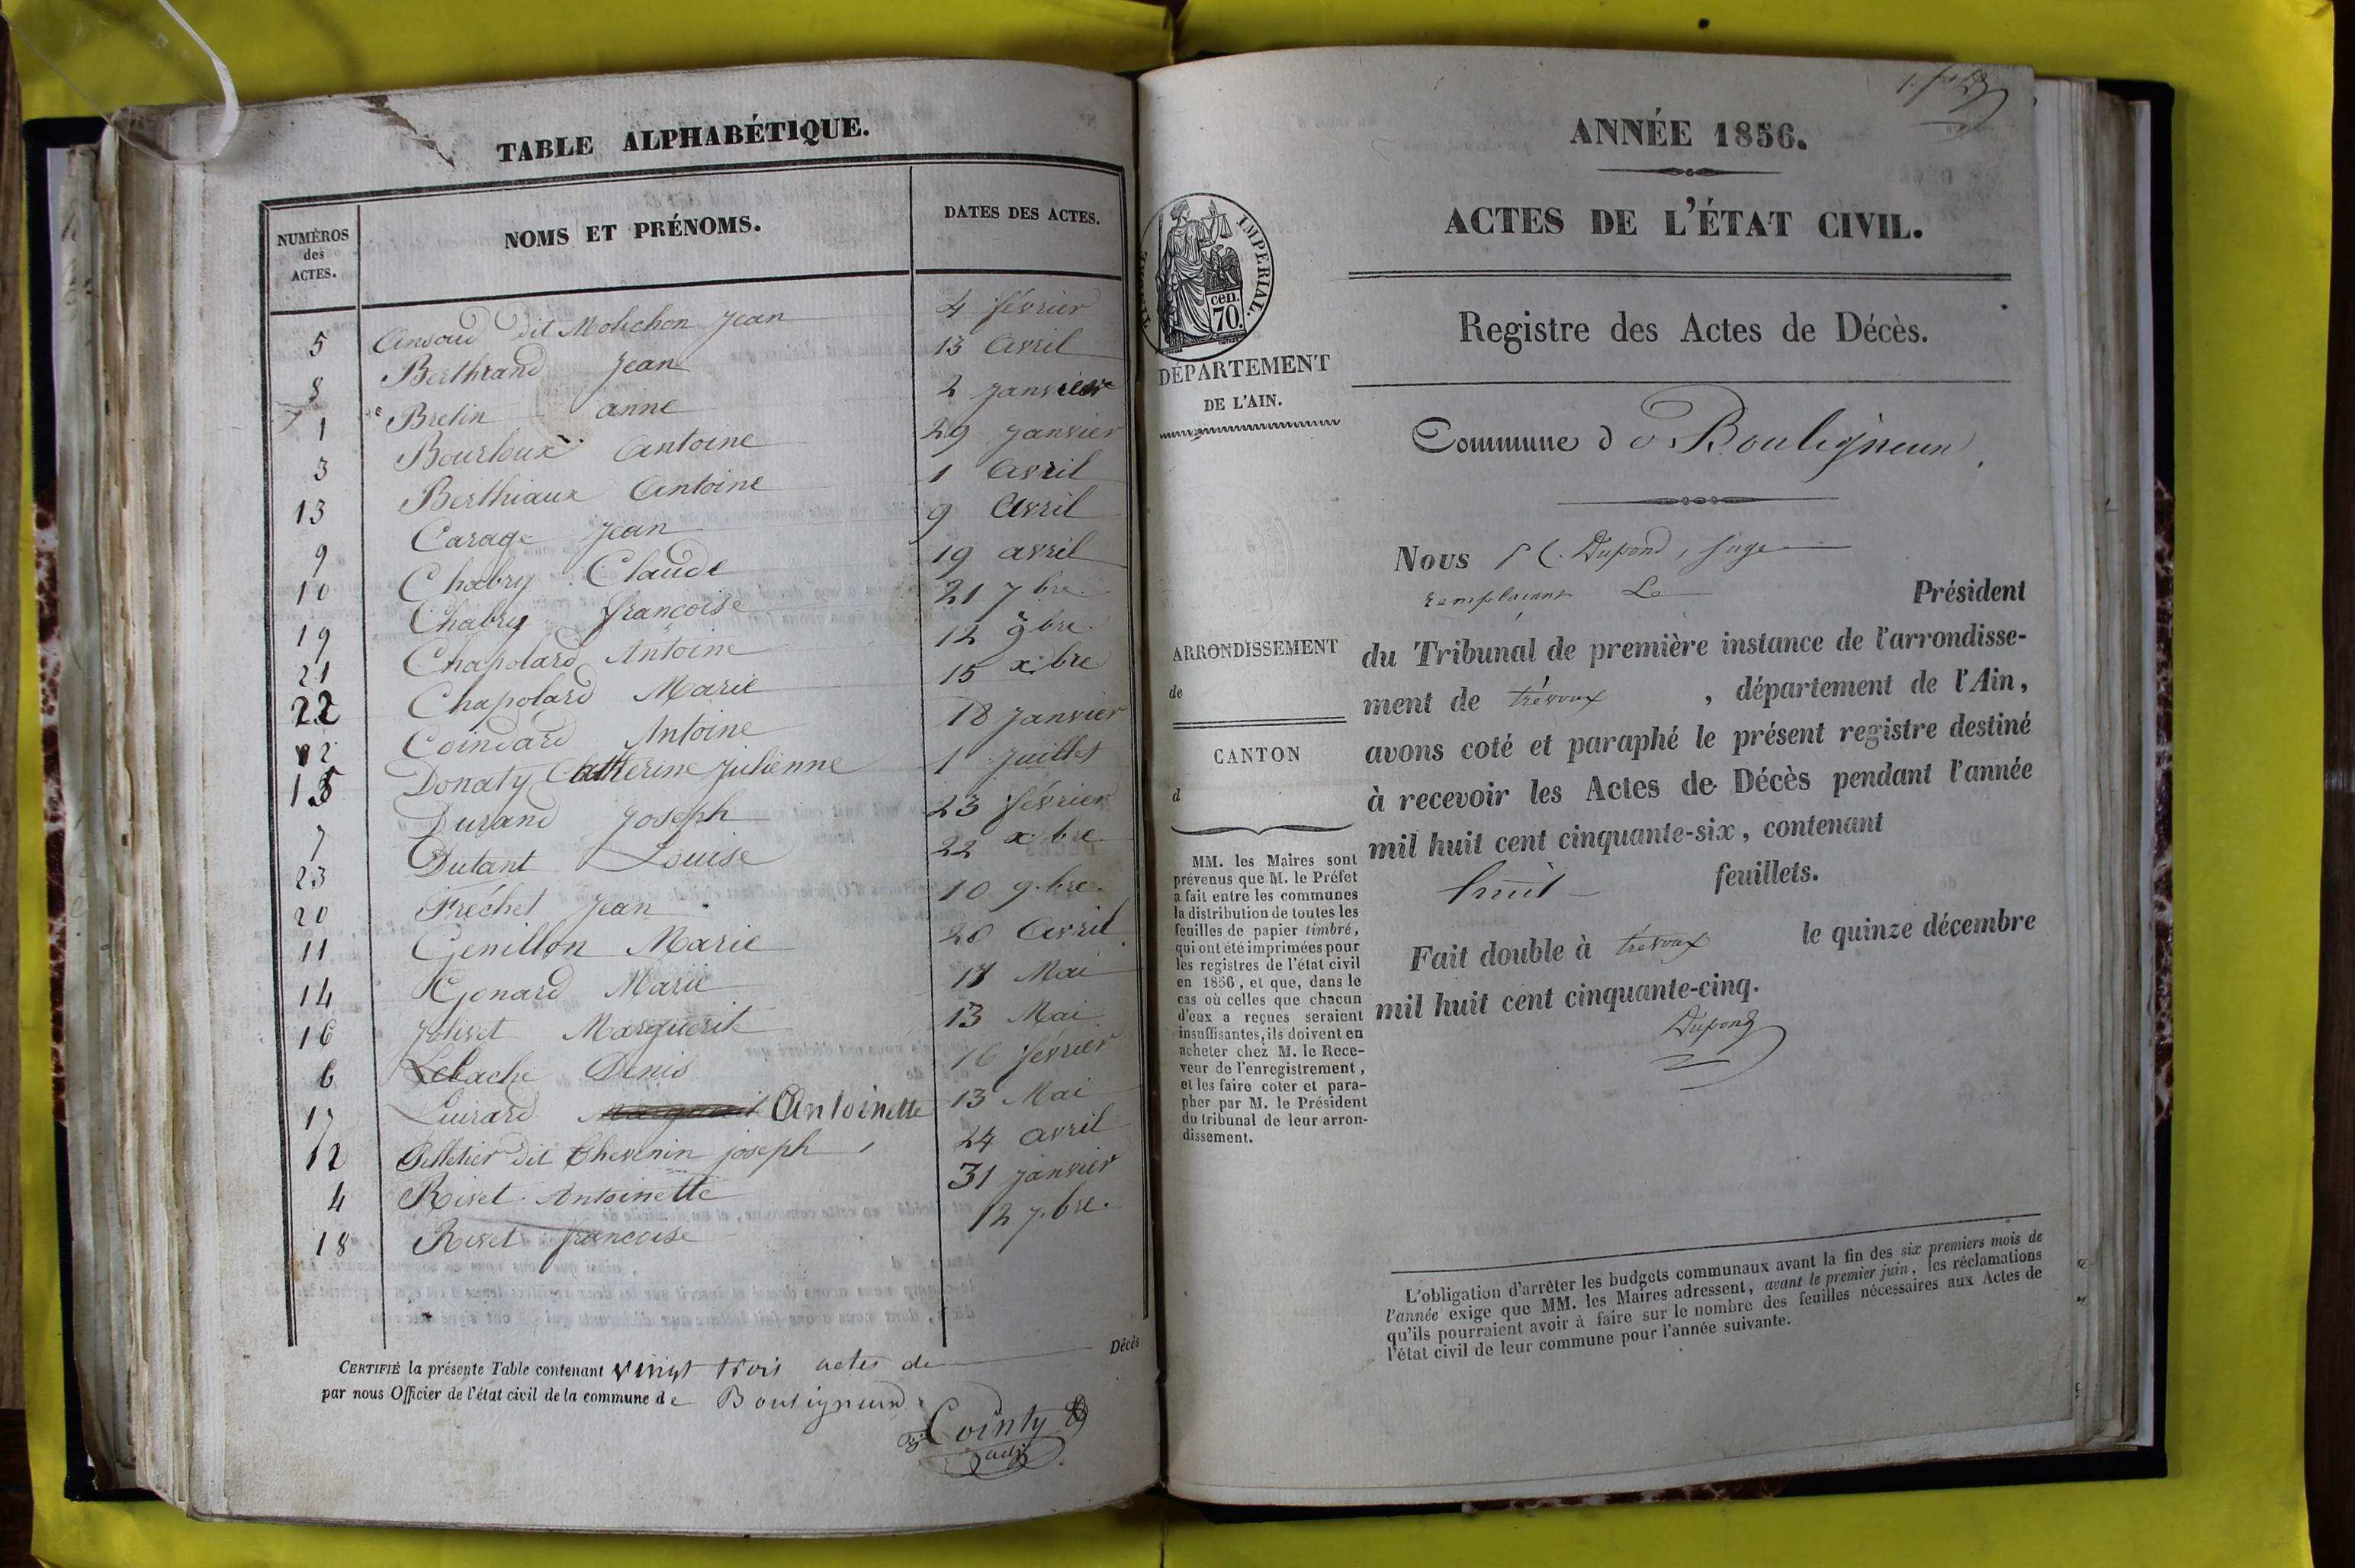 TABLE ALPHABÉTIQUE.
NUMÉROS
des
ACTES.
NOMS ET PRÉNOMS.
DATES DES ACTES.
5 dit Molichon Jean 4 février
8 Berthrand Jean 13 Avril
1 Bretin anne 2 Janvier
3 Bourloux Antoine 29 Janvier
13 Berthiaux Antoine 1 Avril
9 Carage Jean 9 Avril
10 Chabry Claude 19 avril
19 Chabry francoise 21 7bre
21 Chapolard Antoine 12 9bre.
22 Chapolard Marie 15 xbre
2 Coindard Antoine 18 Janvier
15 Donaty Catherine Julienne 1 Juillet
7 Durand Joseph 23 février
23 Dutant Louise 22 xbre
20 Fréchet Jean 10 9.bre.
11 Genillon Marie 20 Avril
14 Gonard Marie 11 Mai
16 Jolivet Marguerite 13 Mai
6 Lebache Denis 16 fevrier
17 Luirard Antoinette 13 Mai
12 Pelletier dit Thevenin joseph 24 avril
4 Rivet Antoinette 31 janvier
18 Rivet francoise 12 7.bre.
CERTIFIÉ la présente Table contenant vingt trois actes de Décès
par nous Officier de l'état civil de la commune de Bouligneux
Cointy
adj
ANNÉE 1856.
ACTES DE L'ÉTAT CIVIL.
IMPERIAL.
cen.
70.
DÉPARTEMENT
DE L'AIN.
Registre des Actes de Décès.
Commune de Bouligneux
Nous Dupond, Juge
remplaçant Le Président
ARRONDISSEMENT
de
CANTON
d
du Tribunal de première instance de l'arrondisse-
ment de trévoux , département de l'Ain,
avons coté et paraphé le présent registre destiné
à recevoir les Actes de Décès pendant l'année
mil huit cent cinquante-six, contenant
huit feuillets.
Fait double à trévoux le quinze décembre
mil huit cent cinquante-cinq.
Dupond
MM. les Maires sont
prévenus que M. le Préfet
a fait entre les communes
la distribution de toutes les
feuilles de papier timbré,
qui ont été imprimées pour
les registres de l'état civil
en 1856, et que, dans le
cas où celles que chacun
d'eux a reçues seraient
insuffisantes, ils doivent en
acheter chez M. le Rece-
veur de l'enregistrement,
et les faire coter et para-
pher par M. le Président
du tribunal de leur arron-
dissement.
L'obligation d'arrêter les budgets communaux avant la fin des six premiers mois de
l'année exige que MM. les Maires adressent, avant le premier juin, les réclamations
qu'ils pourraient avoir à faire sur le nombre des feuilles nécessaires aux Actes de
l'état civil de leur commune pour l'année suivante.